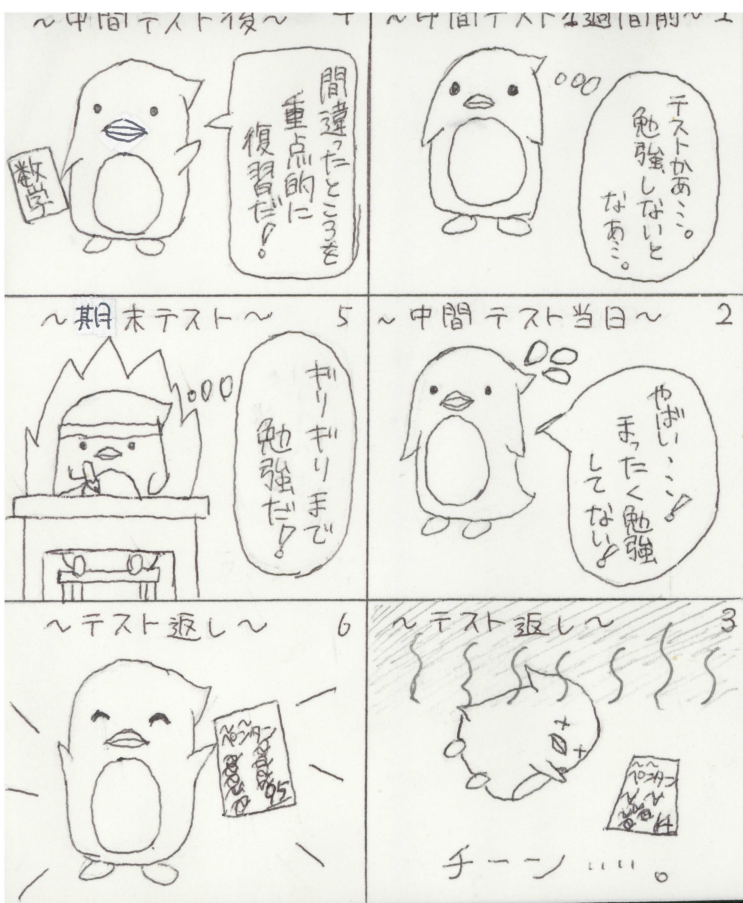 〜中間テスト1週間前〜 1
テストかあ…。
勉強しないと
なあ…。
〜中間テスト当日〜 2
やばい…!
まったく勉強
してない!
〜テスト返し〜 3
ペンタン
14
チーン……。
〜中間テスト後〜 4
間違ったところを
重点的に
復習だ!
数学
〜期末テスト〜 5
ギリギリまで
勉強だ!
〜テスト返し〜 6
ペンタン
95